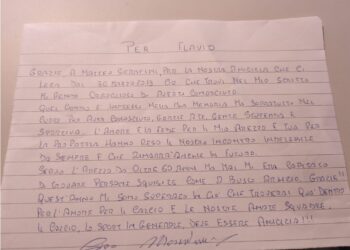 PER FLAVIO
GRAZIE A MATTEO SERAFINI, PER LA NOSTRA AMICIZIA CHE CI
LEGA DAL 30 MARZO 2019. CIÒ CHE TROVI NEL MIO SCRITTO
MI RENDO ORGOGLIOSO DI AVERTI CONOSCIUTO.
QUEL GIORNO È IMPRESSO NELLA MIA MEMORIA MA SOPRATTUTTO NEL
CUORE PER AVER CONOSCIUTO, GRAZIE A TE, GENTE STUPENDA E
SPORTIVA. L'AMORE E LA FEDE PER IL MIO AREZZO E TUA PER
LA PRO PATRIA HANNO RESO IL NOSTRO INCONTRO INDELEBILE
DA SEMPRE E CHE RIMARRÀ ANCHE IN FUTURO.
SEGUO L'AREZZO DA OLTRE 60 ANNI MA MAI MI ERA CAPITATO
DI TROVARE PERSONE SQUISITE COME A BUSTO ARSIZIO, GRAZIE!!
QUEST'ANNO MI SONO SUPERATO IN CIÒ CHE TROVERAI QUI DENTRO
PER L'AMORE PER IL CALCIO E LE NOSTRE AMATE SQUADRE.
IL CALCIO, LO SPORT IN GENERALE, DEVE ESSERE AMICIZIA!!!